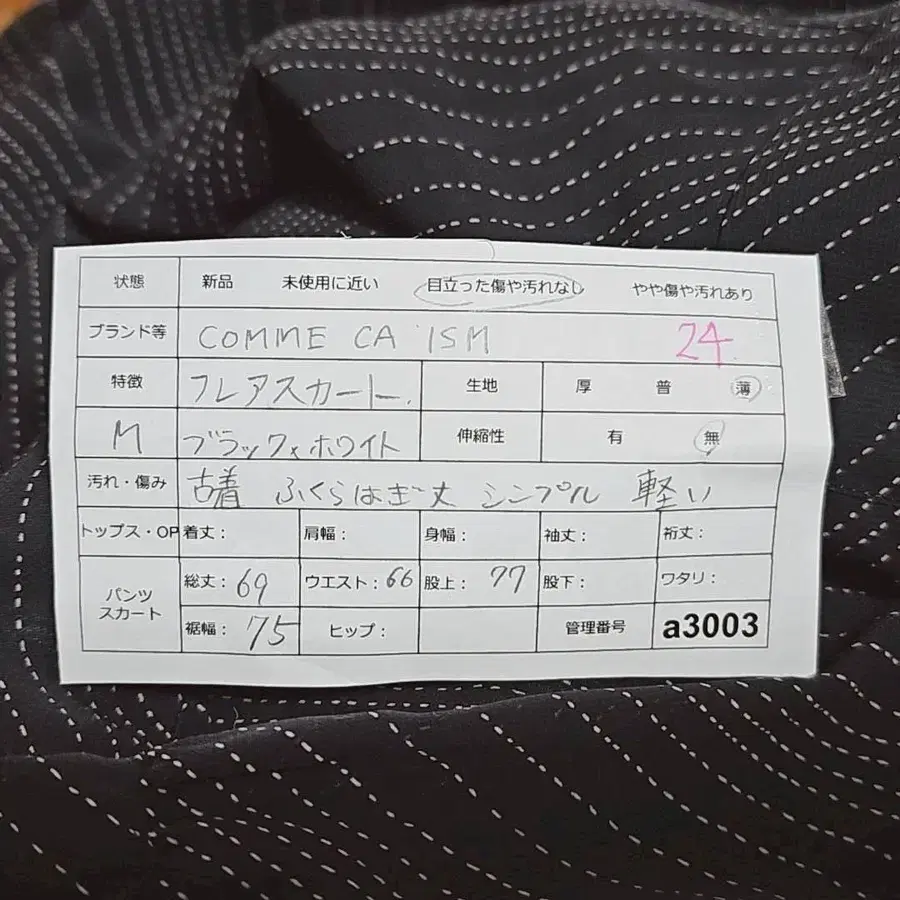 状態 新品 未使用に近い 目立った傷や汚れなし やや傷や汚れあり
ブランド等 COMME CA ISM 24
特徴 フレアスカート. 生地 厚 普 薄
M ブラック×ホワイト 伸縮性 有 無
汚れ・傷み 古着 ふくらはぎ丈 シンプル 軽い
トップス・OP 着丈: 肩幅: 身幅: 袖丈: 裄丈:
パンツ
スカート
総丈: 69 ウエスト: 66 股上: 77 股下: ワタリ:
裾幅: 75 ヒップ: 管理番号 a3003